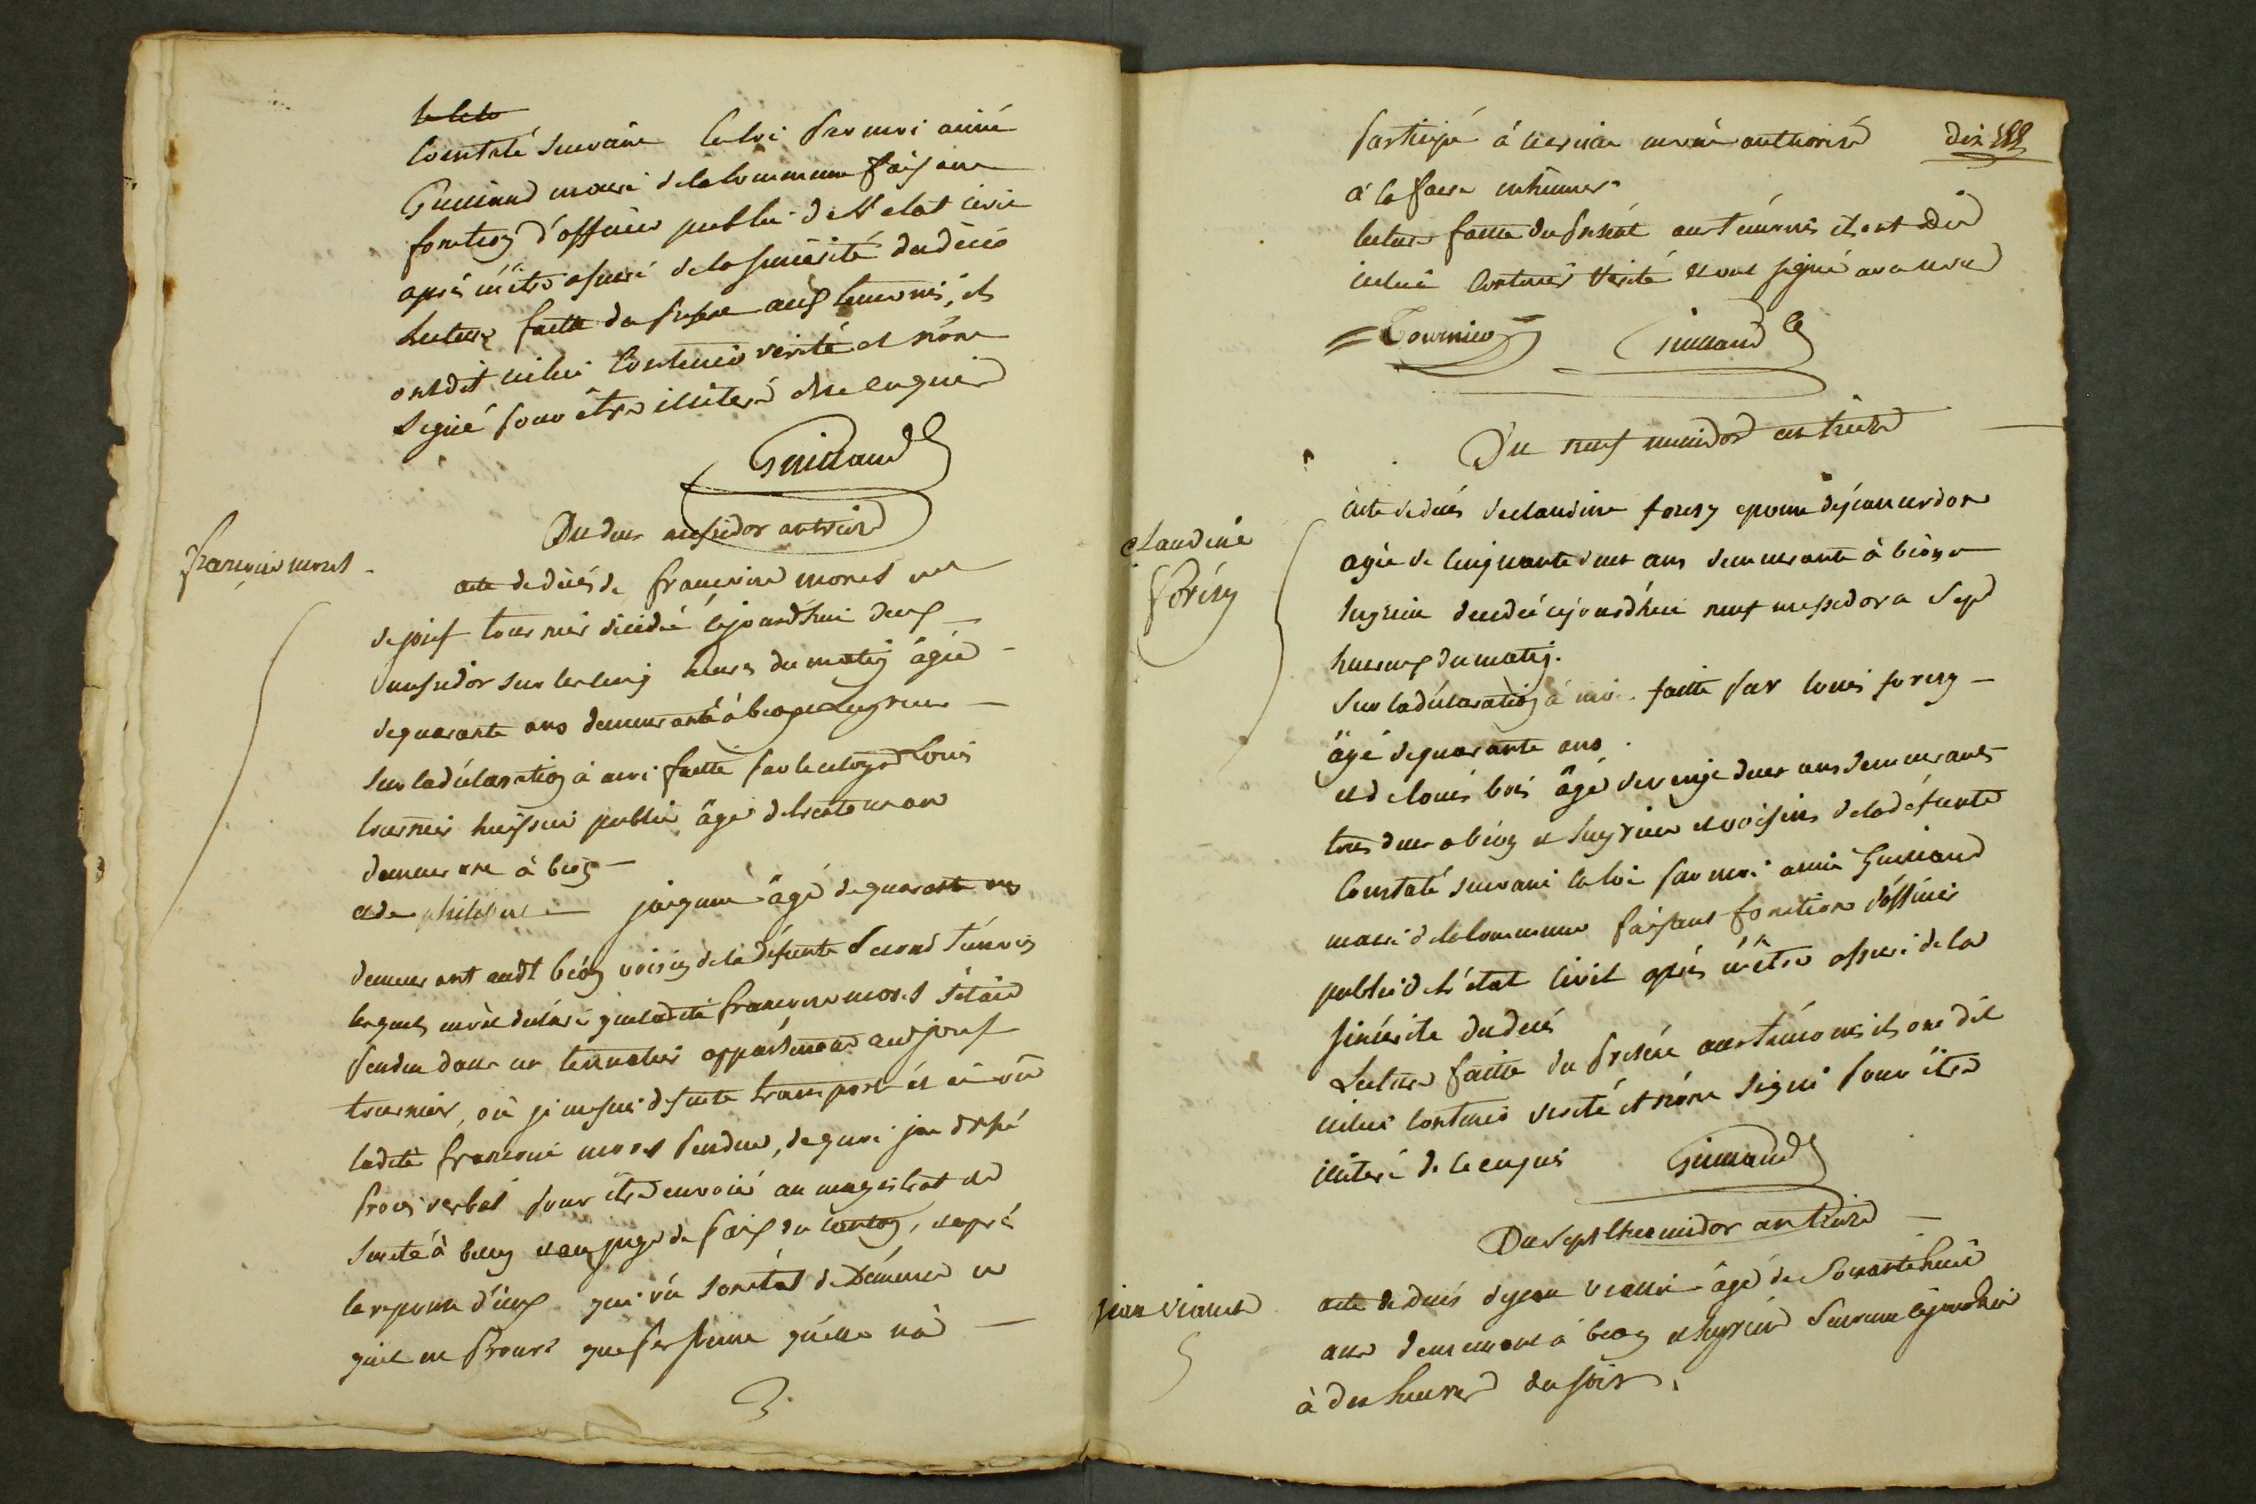 Constaté suivant la loi par moi aimé
Guilland maire de la commune faisant
fonction d'officier public de l'etat civil
après m'être assuré de la sincérité du décès
Lecture faitte du present aux temoins, ils
ont dit icelui contenir verité et n'ont
signé pour être illiteré de ce enquis
Guilland
Du deux messidor an treize
françoise morel
acte de décès de françoise morel
de josef tournier décédé cejourdhui deux
messidor sur les cinq heures du matin âgée
de quarante ans demeurante à béon Luyrieu
sur la déclaration à moi faitte par le Louis
tournier huissier public âgé de trente un an
demeurant à béon
et de philibert jacquin âgé de quarante ans
demeurant audt béon voisin de la défunte second témoin
lesquels m'ont déclaré que ladite françoise morel s'étoit
pendue dans un appartenant au josef
tournier, où je me suis de suite transporté et ai vu
ladite françoise morel pendue, de quoi j'ai dressé
procès verbal pour être envoié au magistrat de
sureté à belley et au juge de paix du canton, et après
la reponse d'iceux qui vu son état de Démence et
qu'il ne prouve que personne qu'elle n'a
participé à m'ont authorisé
dix
à la faire inhumer.
lecture faitte du présent aux témoins ils ont dit
icelui contenir Verité et ont signé avec nous
Tournier Guilland
Du neuf messidor an treize
Claudine
Forésy
acte de décès de claudine foresy epouse de jean
agée de cinquante deux ans demeurante à béon
luyrieu décédée cejourd'hui neuf messidor a sept
heures du matin.
Sur la déclaration à moi faitte par louis foresy
âgé de quarante ans
et de louis âgé de vingt deux ans demeurant
tous deux a béon et luyrieu et voisins de la défunte
Constaté suivant la loi par moi aimé Guilland
maire de la commune faisant fonction d'officier
public de l'état civil après m'être assuré de la
sincérité du décès
Lecture faitte du present aux témoins ils ont dit
icelui contenir verité et n'ont signé pour être
illiteré de ce enquis Guilland
Du sept thermidor an treize
jean
acte de décès de jean âgé de soixante huit
ans demeurant à béon et luyrieu cejourdhui
à dix heures du soir.